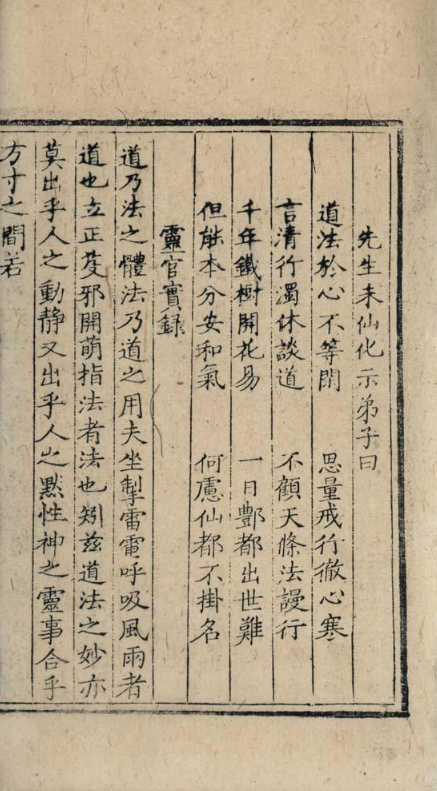 先生未仙化示弟子曰
道法於心不等閑 思量戒行徹心寒
言清行濁休談道 不顧天條法謾行
千年鐵樹開花易 一日酆都出世難
但能本分安和氣 何慮仙都不掛名
靈官實録
道乃法之體法乃道之用夫坐掣雷電呼吸風雨者
道也立正芟邪開萌指法者法也矧兹道法之妙亦
莫出乎人之動靜又出乎人之黙性神之靈事合乎
方寸之間若